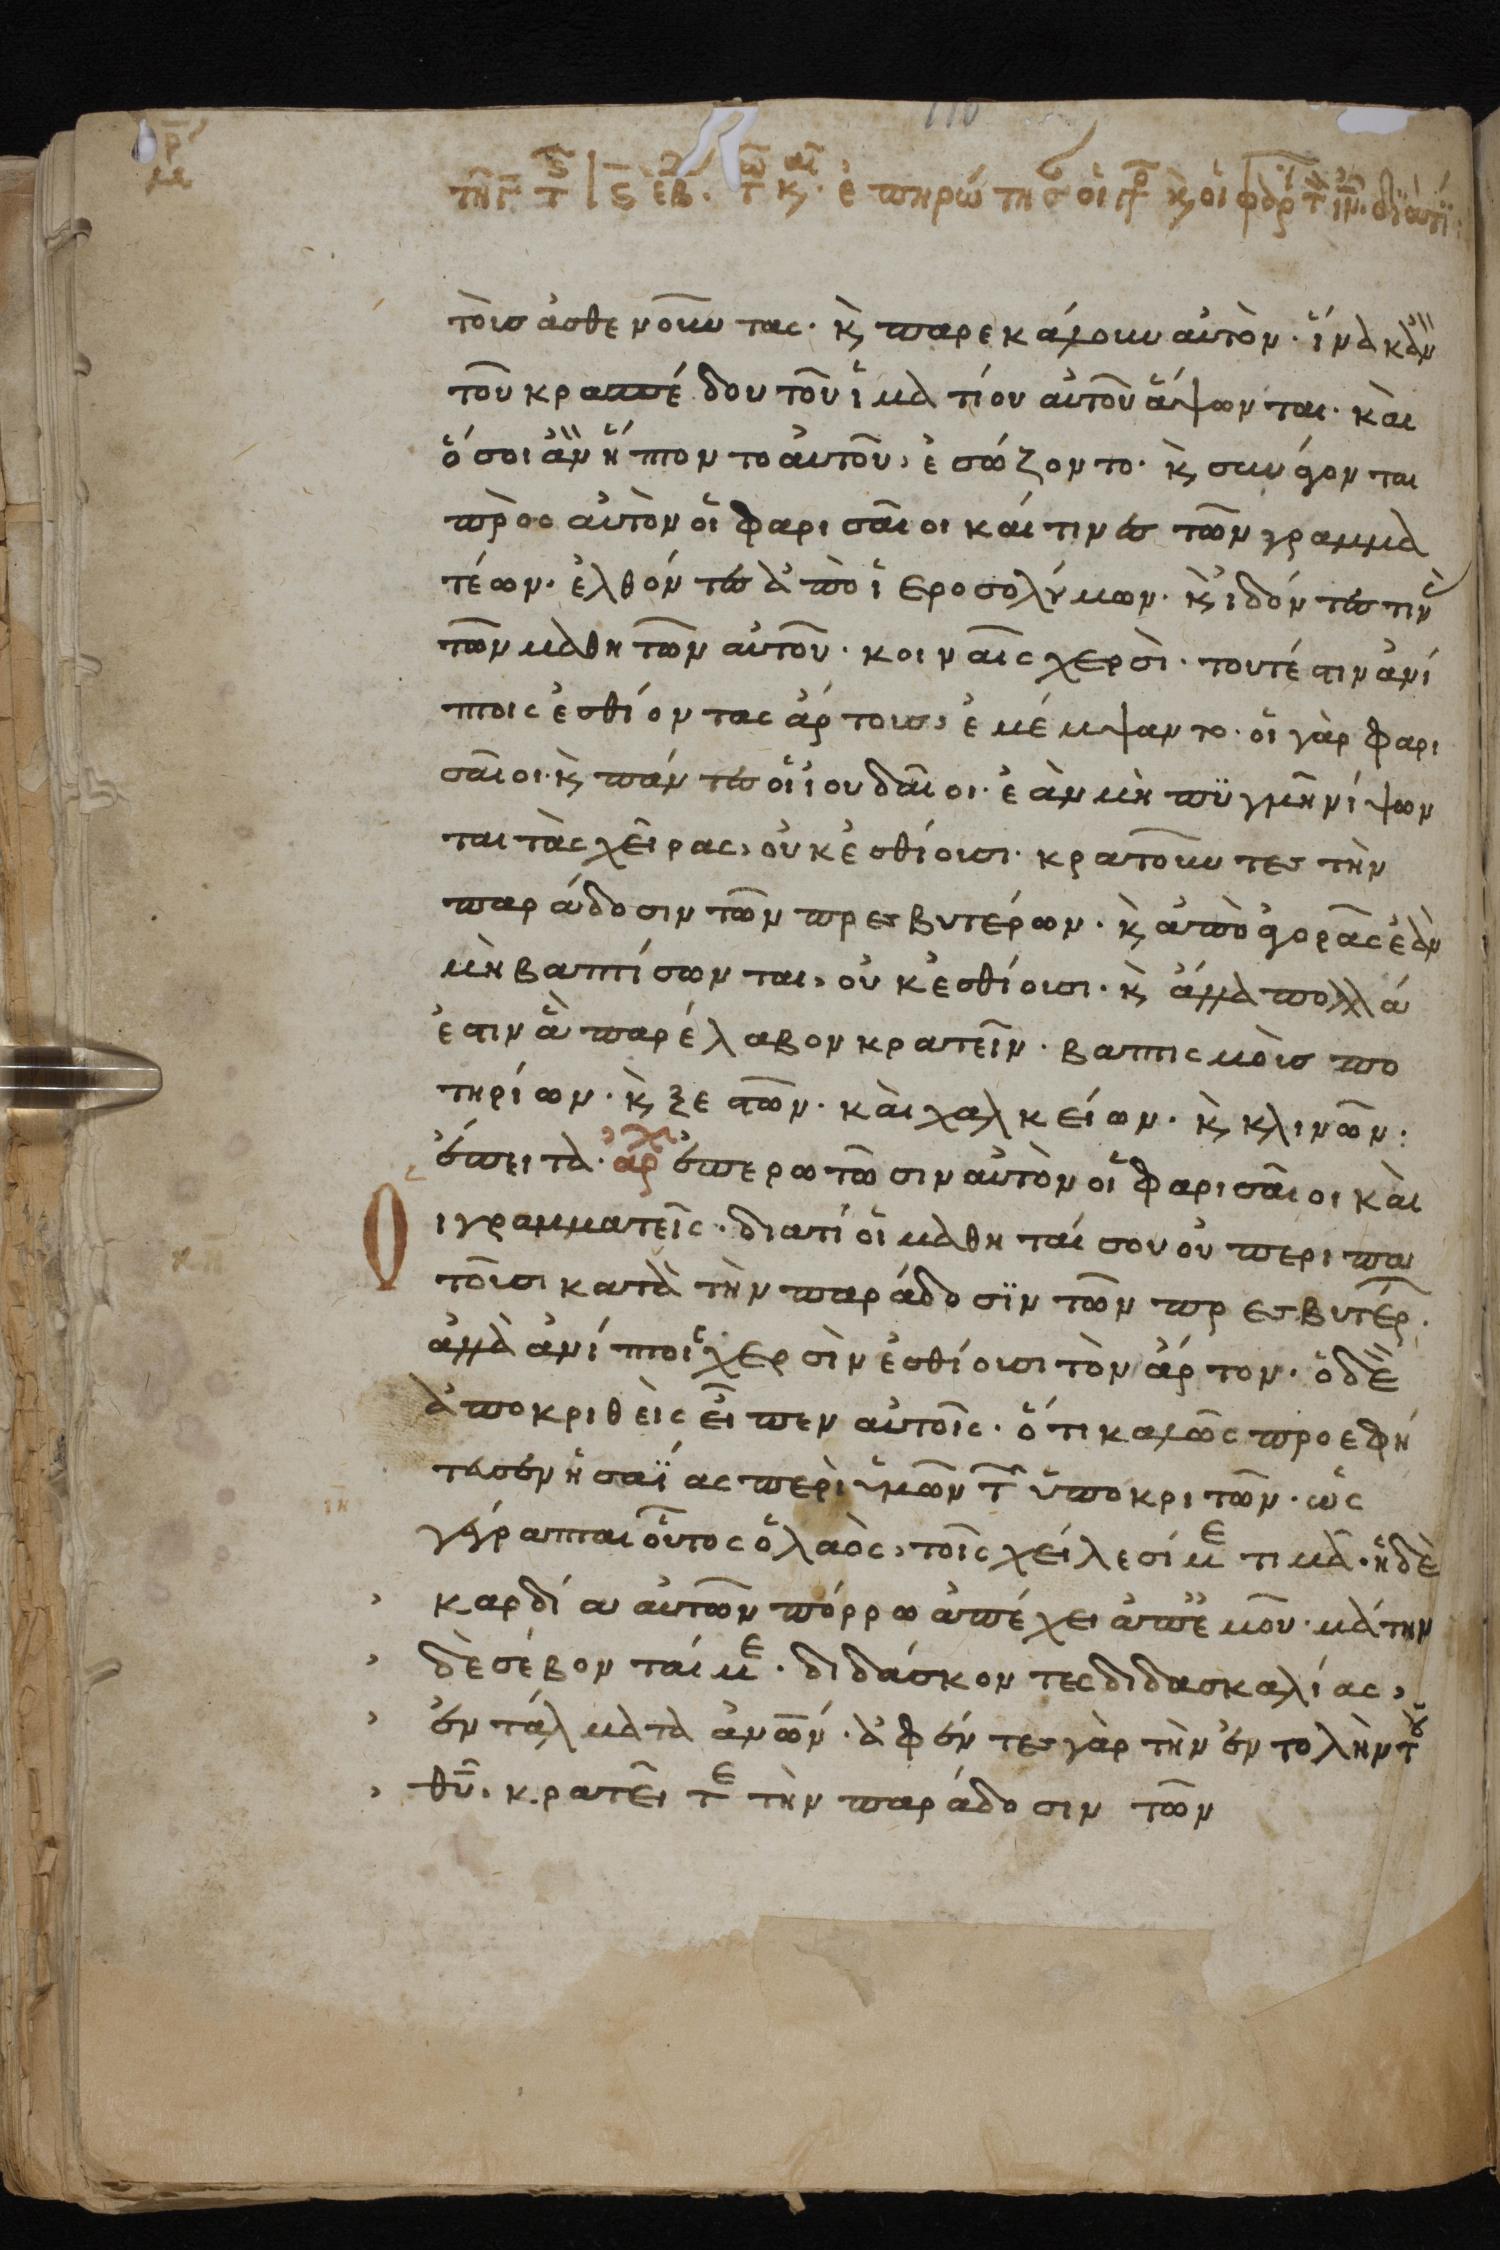 τοὺσ ἀσθενοῦντας· κ̀ παρεκάλουν αὐτὸν· ἵνα κἂν
τοῦ κρασπέδου τοῦ ἱματίου αὐτοῦ ἅψωνται· καὶ
ὅσοι ἂν ἥπτοντο αὐτοῦ, ἐσώζοντο· κ̀ συνάγονται
πρὸσ αὐτὸν οἱ φαρισαῖοι καί τινεσ τῶν γραμμα
τέων· ἐλθόντεσ ἀπὸ ἱεροσολύμων· κ̀ ἰδόντεσ τινὰ
τῶν μαθητῶν αὐτοῦ· κοιναῖς χερσὶ· τουτέστιν ἀνί
πτοις ἐσθίοντας ἄρτουσ, ἐμέμψαντο· οἱ γὰρ φαρι
σαῖοι· κ̀ πάντεσ οἱ ἰουδαῖοι· ἐὰν μὴ πϋγμῆ νίψων
ται τὰς χεῖρας, οὐκ ἐσθίουσι· κρατοῦντεσ τὴν
παράδοσιν τῶν πρεσβυτέρων· κ̀ ἀπὸ ἀγορᾶς ἐὰν
μὴ βαπτίσωνται, οὐκ ἐσθίουσι· κ̀ ἄλλα πολλά
ἐστιν ἃ παρέλαβον κρατεῖν· βαπτισμοὺσ πο
τηρίων· κ̀ ξεστῶν· καὶ χαλκείων· κ̀ κλινῶν:
ἔπειτα· ἀρχ ἐπερωτῶσιν αὐτὸν οἱ φαρισαῖοι καὶ
Οἱ γραμματεῖς· διατί οἱ μαθηταί σου οὐ περιπα
τοῦσι κατὰ τὴν παράδοσϊν τῶν πρεσβυτέρ·
ἀλλὰ ἀνίπτοις χερσὶν ἐσθίουσι τὸν ἄρτον· ὁ δὲ
ἀποκριθεὶς εἶπεν αὐτοῖς· ὅτι καλῶς προεφή
τευσεν ἡσαΐας περὶ ὑμῶν τ ὑποκριτῶν· ὡς
γέγραπται οὗτος ὁ λαὸς, τοῖς χείλεσί με τιμᾶ· ἡ δὲ
καρδία αὐτῶν πόρρω ἀπέχει ἀπ ἐμοῦ· μάτην
δὲ σέβονταί με· διδάσκοντες διδασκαλίας,
ἐντάλματα ἀν̅ω̅ν· ἀφέντεσ γὰρ τὴν ἐντολὴν τοῦ
θ̅υ̅· κρατεῖτε τὴν παράδοσιν τῶν